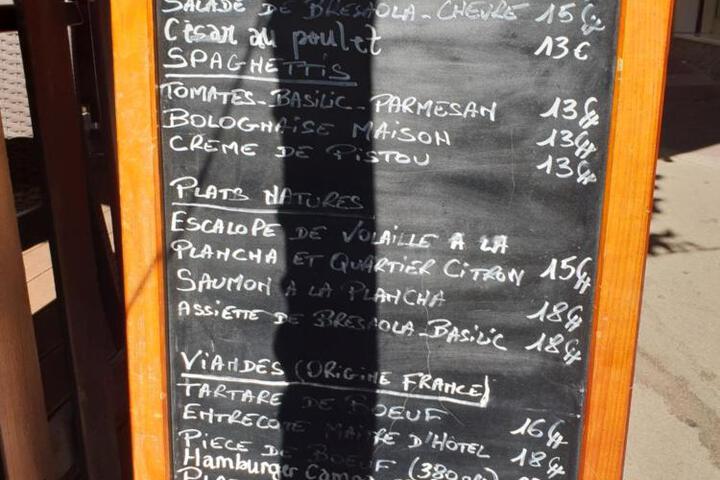 SALADE DE BRESAOLA-CHEVRE 15€
César au poulet 13€
SPAGHETTIS
TOMATES-BASILIC-PARMESAN 13€
BOLOGNAISE MAISON 13€
CREME DE PISTOU 13€
PLATS NATURES
ESCALOPE DE VOLAILLE A LA
PLANCHA ET QUARTIER CITRON 15€
SAUMON A LA PLANCHA 18€
ASSIETTE DE BRESAOLA-BASILIC 18€
VIANDES (ORIGINE FRANCE)
TARTARE DE BOEUF 16€
ENTRECOTE MAITRE D'HÔTEL 18€
PIECE DE BOEUF (380
Hamburger